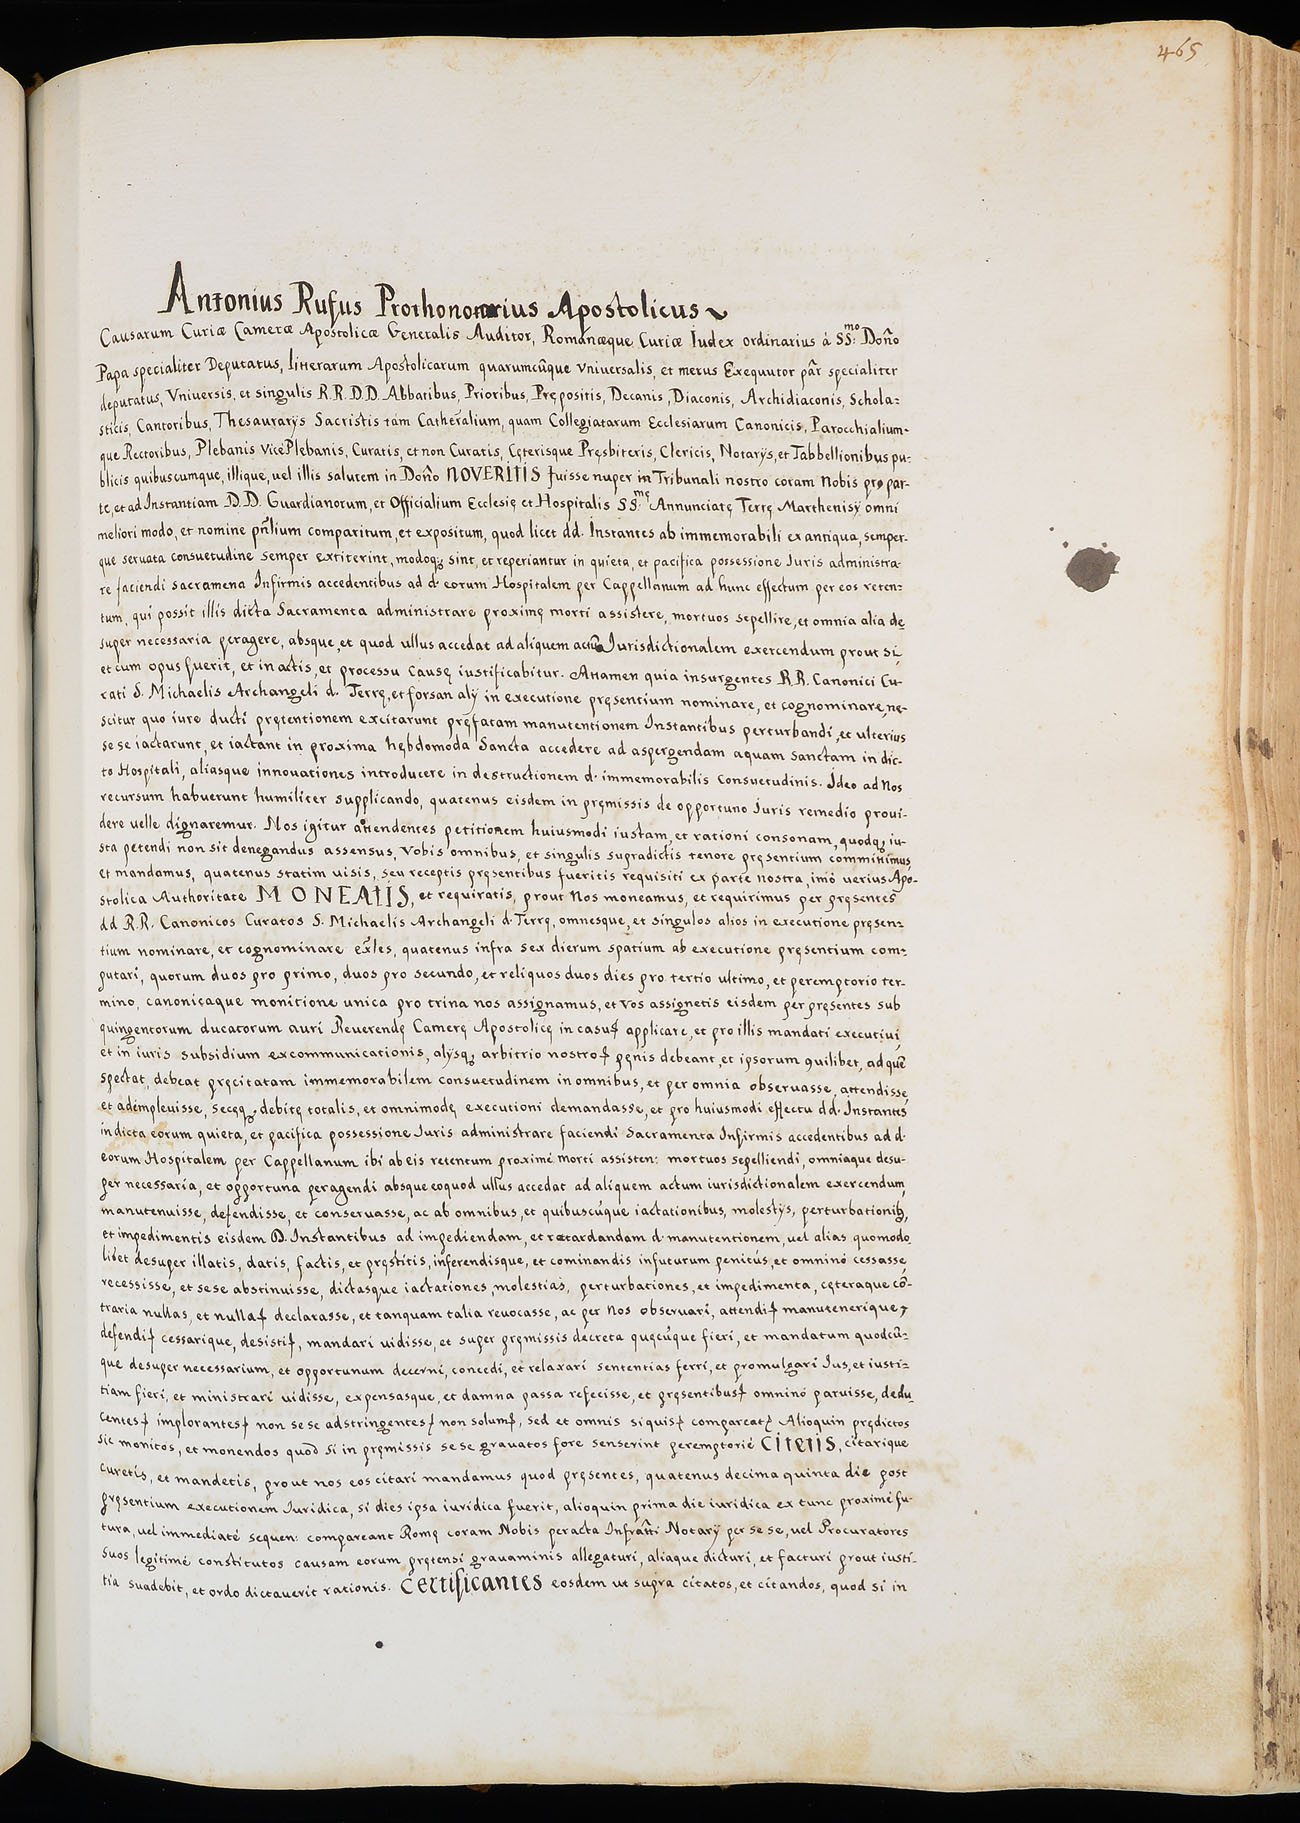 465
Antonius Rufus Prothonotarius Apostolicus
Causarum Curiæ Cameræ Apostolicæ Generalis Auditor, Romanæque Curiæ Iudex ordinarius à SS:mo Dono
Papa specialiter Deputatus, litterarum Apostolicarum quarumcûque Vniversalis, et merus Exequutor par specialiter
deputatus, Vniversis, et singulis R.R.D.D. Abbatibus, Prioribus, Prępositis, Decanis, Diaconis, Archidiaconis, Schola=
sticis, Cantoribus, Thesaurarÿs Sacristis tàm Cathelralium, quam Collegiatarum Ecclesiarum Canonicis, Parocchialium-
que Rectoribus, Plebanis VicePlebanis, Curatis, et non Curatis, Cęterisque Pręsbiteris, Clericis, Notarÿs, et Tabbellionibus pu-
blicis quibuscumque, illique, vel illis salutem in Dono NOVERITIS fuisse nuper in Tribunali nostro coram Nobis pro par-
te, et ad Instantiam D.D. Guardianorum, et Officialium Ecclesię et Hospitalis SS:mę Annunciatę Terrę Marthenisÿ omni
meliori modo, et nomine pñlium comparitum, et expositum, quod licet dd. Instantes ab immemorabili ex antiqua, semper-
que servata consuetudine semper extiterint, modoq; sint, et reperiantur in quieta, et pacifica possessione Iuris administra-
re faciendi sacramena Infirmis accedentibus ad d. eorum Hospitalem per Cappellanum ad hunc effectum per eos reten=
tum, qui possit illis dicta Sacramenta administrare proximę morti assistere, mortuos sepellire, et omnia alia de
super necessaria peragere, absque, et quod ullus accedat ad aliquem actũ Jurisdictionalem exercendum prout si,
et cum opus fuerit, et in actis, et processu causę iustificabitur. Attamen quia insurgentes R.R. Canonici Cu-
rati S. Michaelis Archangeli d. Terrę, et forsan alÿ in executione pręsentium nominare, et cognominare, ne-
scitur quo iure ducti pretentionem excitarunt pręfatam manutentionem Instantibus perturbandi, et ulterius
se se iactarunt, et iactant in proxima hębdomoda Sancta accedere ad aspergendam aquam sanctam in dic-
to Hospitali, aliasque innovationes introducere in destructionem d. immemorabilis consuetudinis. Ideo ad Nos
recursum habuerunt humiliter supplicando, quatenus eisdem in pręmissis de opportuno Iuris remedio provi-
dere velle dignaremur. Nos igitur attendentes petitionem huiusmodi iustam, et rationi consonam, quodq; iu-
sta petendi non sit denegandus assensus, Vobis omnibus, et singulis supradictis tenore pręsentium committimus
et mandamus, quatenus statim visis, seu receptis pręsentibus fueritis requisiti ex parte nostra, imò verius Apo-
stolica Authoritate MONEATIS, et requiratis, prout Nos moneamus, et requirimus per pręsentes
dd R.R. Canonicos Curatos S. Michaelis Archangeli d. Terrę, omnesque, et singulos alios in executione pręsen=
tium nominare, et cognominare exles, quatenus infra sex dierum spatium ab executione pręsentium com=
putari, quorum duos pro primo, duos pro secundo, et reliquos duos dies pro tertio ultimo, et peremptorio ter-
mino, canonicaque monitione unica pro trina nos assignamus, et vos assignetis eisdem per pręsentes sub
quingentorum ducatorum auri Reverendę Camerę Apostolicę in casuꝭ applicare, et pro illis mandati executivi,
et in iuris subsidium excommunicationis, alÿsq; arbitrio nostroꝭ pęnis debeant, et ipsorum quilibet, ad quẽ
spectat, debeat pręcitatam immemorabilem consuetudinem in omnibus, et per omnia observasse, attendisse,
et adimplevisse, secęq; debitę totalis, et omnimodę executioni demandasse, et pro huiusmodi effectu dd. Instantes
in dicta eorum quieta, et pacifica possessione Iuris administrare faciendi Sacramenta Infirmis accedentibus ad d.
eorum Hospitalem per Cappellanum ibi ab eis retentum proximè morti assisten: mortuos sepelliendi, omniaque desu-
per necessaria, et opportuna peragendi absque eoquod ullus accedat ad aliquem actum iurisdictionalem exercendum,
manutenuisse, defendisse, et conservasse, ac ab omnibus, et quibuscùque iactationibus, molestÿs, perturbationib;,
et impedimentis eisdem D. Instantibus ad impediendam, et rætardandam d. manutentionem, vel alias quomodo
libet desuper illatis, datis, factis, et pręstitis, inferendisque, et cominandis infuturum penitùs, et omninò cessasse,
recessisse, et sese abstinuisse, dictasque iactationes, molestias, perturbationes, et impedimenta, cęteraque cõ-
traria nullas, et nullaꝭ declarasse, et tanquam talia revocasse, ac per Nos observari, attendiꝭ manutenerique,
defendiꝭ cessarique, desistiꝭ, mandari vidisse, et super pręmissis decreta quęcùque fieri, et mandatum quodcũ=
que desuper necessarium, et opportunum decerni, concedi, et relaxari sententias ferri, et promulgari Ius, et iusti=
tiam fieri, et ministrari vidisse, expensasque, et damna passa refecisse, et pręsentibusꝭ omninò paruisse, dedu
centesꝭ implorantesꝭ non sese adstringentesꝭ non solumꝭ, sed et omnis siquisꝭ compareatꝭ Alioquin prędictos
sic monitos, et monendos quòd si in pręmissis sese gravatos fore senserint peremptoriè CITETIS, citarique
curetis, et mandetis, prout nos eos citari mandamus quod pręsentes, quatenus decima quinta die post
pręsentium executionem Iuridica, si dies ipsa iuridica fuerit, alioquin prima die iuridica ex tunc proximè fu-
tura, vel immediatè sequen: compareant Romę coram Nobis peracta Infratti Notarÿ per se se, vel Procuratores
suos legitimè constitutos causam eorum pretensi gravaminis allegaturi, aliaque dicturi, et facturi prout iusti-
tia suadebit, et ordo dictaverit rationis. Certificantes eosdem ut supra citatos, et citandos, quod si in